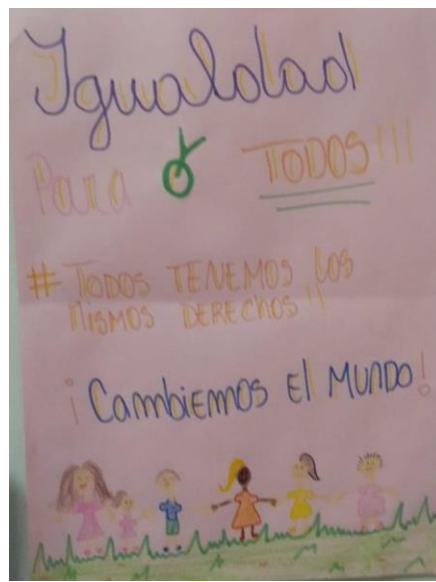 Igualdad
Para TODOS!!!
# TODOS TENEMOS LOS
MISMOS DERECHOS!!
¡Cambiemos El MUNDO!